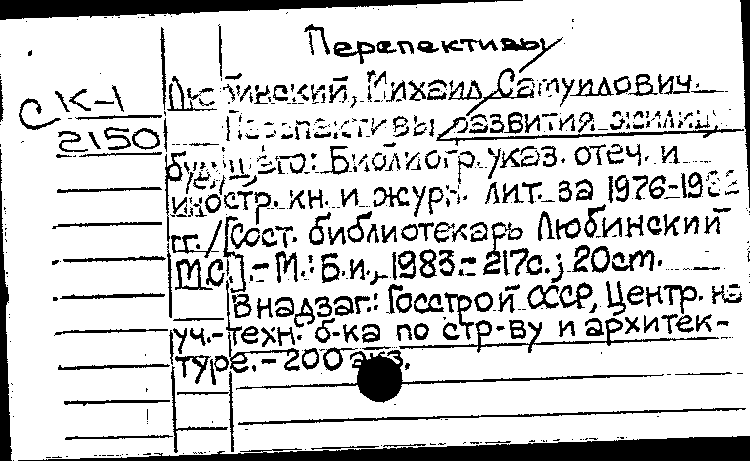 Перспективы
СК-1
2150
Любинский, Михаил Самуилович.
Перспективы развития жилищ
будущего: Библиогр. указ. отеч. и
иностр. кн. и журн. лит. за 1976-1982
гг. / [Сост. библиотекарь Любинский
М.С.]. - М.: Б.и., 1983. - 217с.; 20см.
В надзаг.: Госстрой СССР, Центр. на
уч.-техн. б-ка по стр-ву и архитек-
туре. - 200 экз.